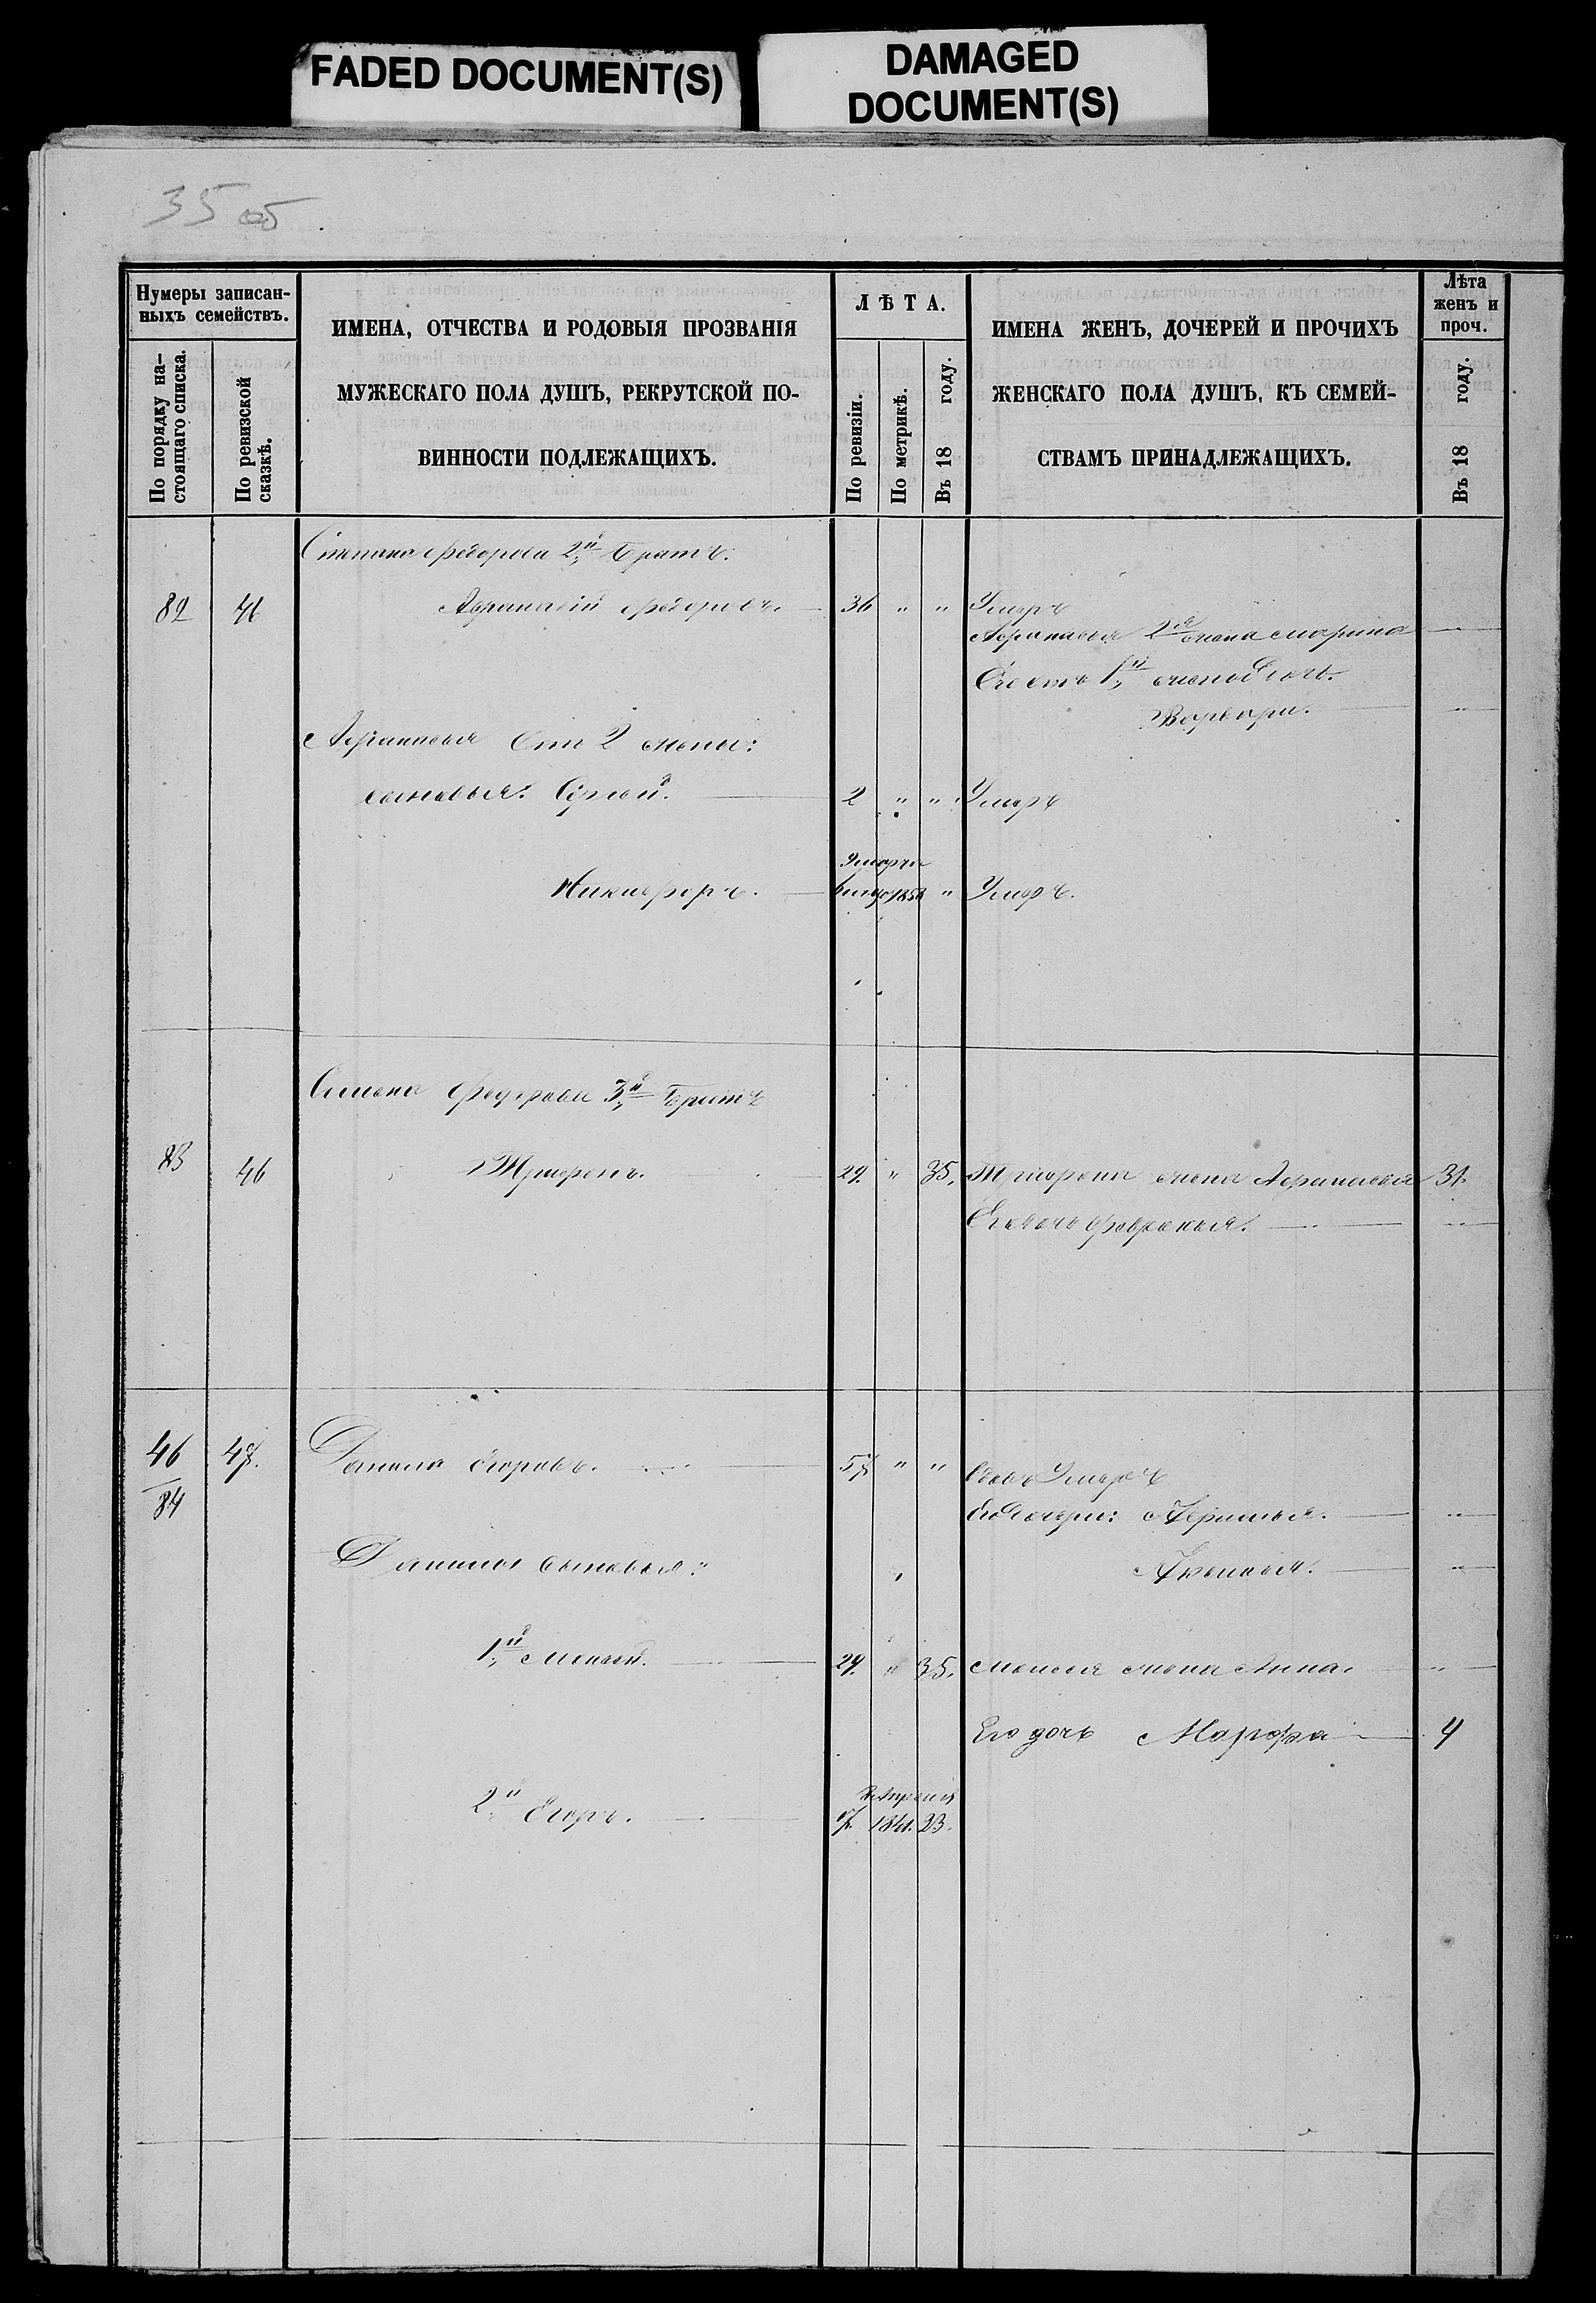 FADED DOCUMENT(S)
DAMAGED
DOCUMENT(S)
35 об
Нумеры записан-
ныхъ семействъ.
По порядку на-
стоящаго списка.
По ревизской
сказкѣ.
ИМЕНА, ОТЧЕСТВА И РОДОВЫЯ ПРОЗВАНІЯ
МУЖЕСКАГО ПОЛА ДУШЪ, РЕКРУТСКОЙ ПО-
ВИННОСТИ ПОДЛЕЖАЩИХЪ.
ЛѢТА.
По ревизіи.
По метрикѣ.
Въ 18 году.
ИМЕНА ЖЕНЪ, ДОЧЕРЕЙ И ПРОЧИХЪ
ЖЕНСКАГО ПОЛА ДУШЪ, КЪ СЕМЕЙ-
СТВАМЪ ПРИНАДЛЕЖАЩИХЪ.
Лѣта
женъ и
проч.
Въ 18 году.
Федорова 2й братъ.
82 46 Афанасій Федоровъ. 36 " " Умеръ
Афанасья 2я жена Марина
1й жены дочь
Варвара. "
Афанасья от 2 жены:
сыновья: Сергей. 2 " " Умеръ
Никифоръ. 1858 " Умеръ.
Федорова 3й братъ
83 46 Трифонъ. 29. " 35. Трифона жена Афанасья 31.
Его дочь Февронья. "
46 47. Данила Егоровъ. 57 " " Умеръ
84
Его дочери: "
Данилы сыновья:
Аксинья. "
1й Моисей. 29. " 35. Моисея жена Анна. "
Его дочь Марфа 4
2й Егоръ. 1841. 23.